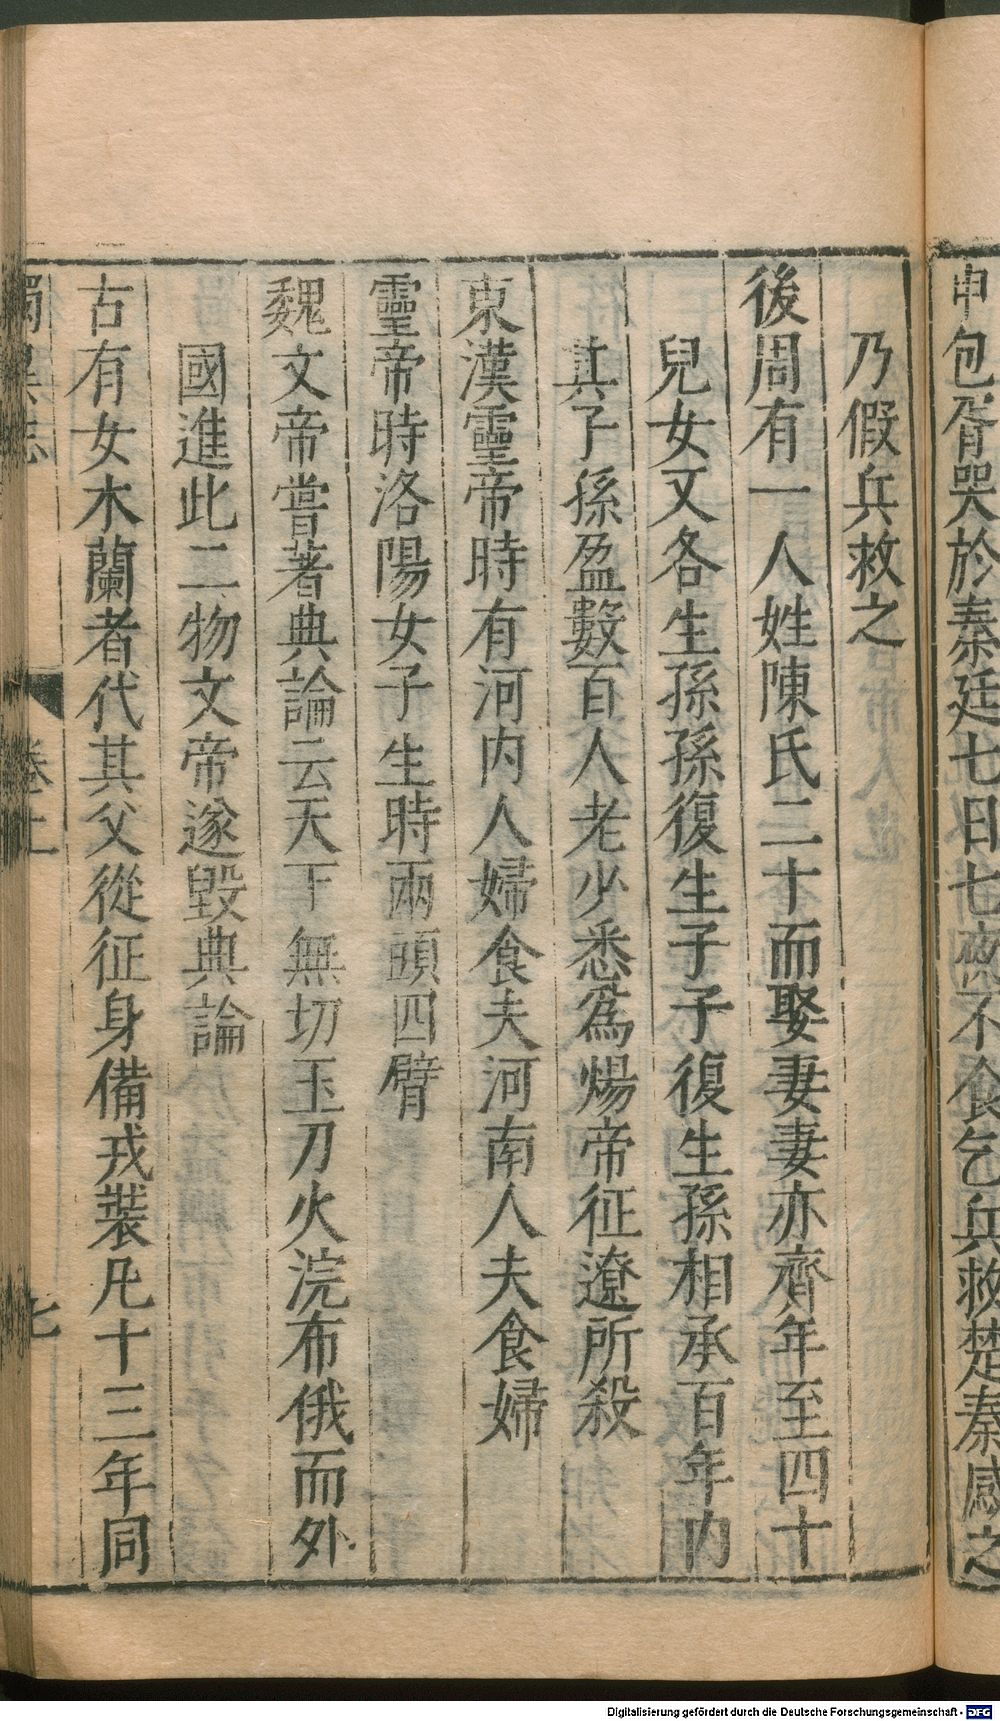 申包胥哭於秦廷七日七夜不食乞兵救楚秦感之
乃假兵救之
後周有一人姓陳氏二十而娶妻妻亦齊年至四十
兒女又各生孫孫復生子子復生孫相承百年內
其子孫盈數百人老少悉爲煬帝征遼所殺
東漢靈帝時有河内人婦食夫河南人夫食婦
靈帝時洛陽女子生時兩頭四臂
魏文帝嘗著典論云天下無切玉刀火浣布俄而外
國進此二物文帝遂毀典論
古有女木蘭者代其父從征身備戎裝凡十三年同
獨異志 卷上 七
Digitalisierung gefördert durch die Deutsche Forschungsgemeinschaft - DFG